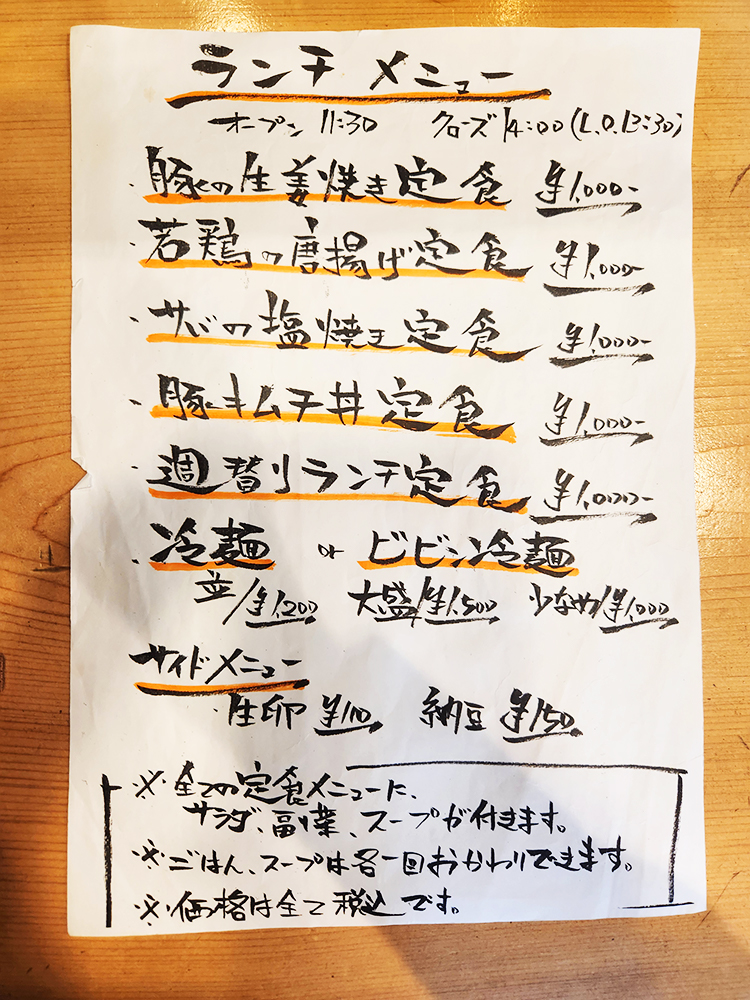 ランチメニュー
オープン 11:30 クローズ 14:00(L.O.13:30)
・豚の生姜焼き定食 ¥1,000-
・若鶏の唐揚げ定食 ¥1,000-
・サバの塩焼き定食 ¥1,000-
・豚キムチ丼定食 ¥1,000-
・週替りランチ定食 ¥1,000-
・冷麺 or ビビン冷麺
並/¥1,200 大盛/¥1,500 少なめ/¥1,000
サイドメニュー
・生卵 ¥110 納豆 ¥150
※全ての定食メニューに、
サラダ、副菜、スープが付きます。
※ごはん、スープは各一回おかわりできます。
※価格は全て税込です。